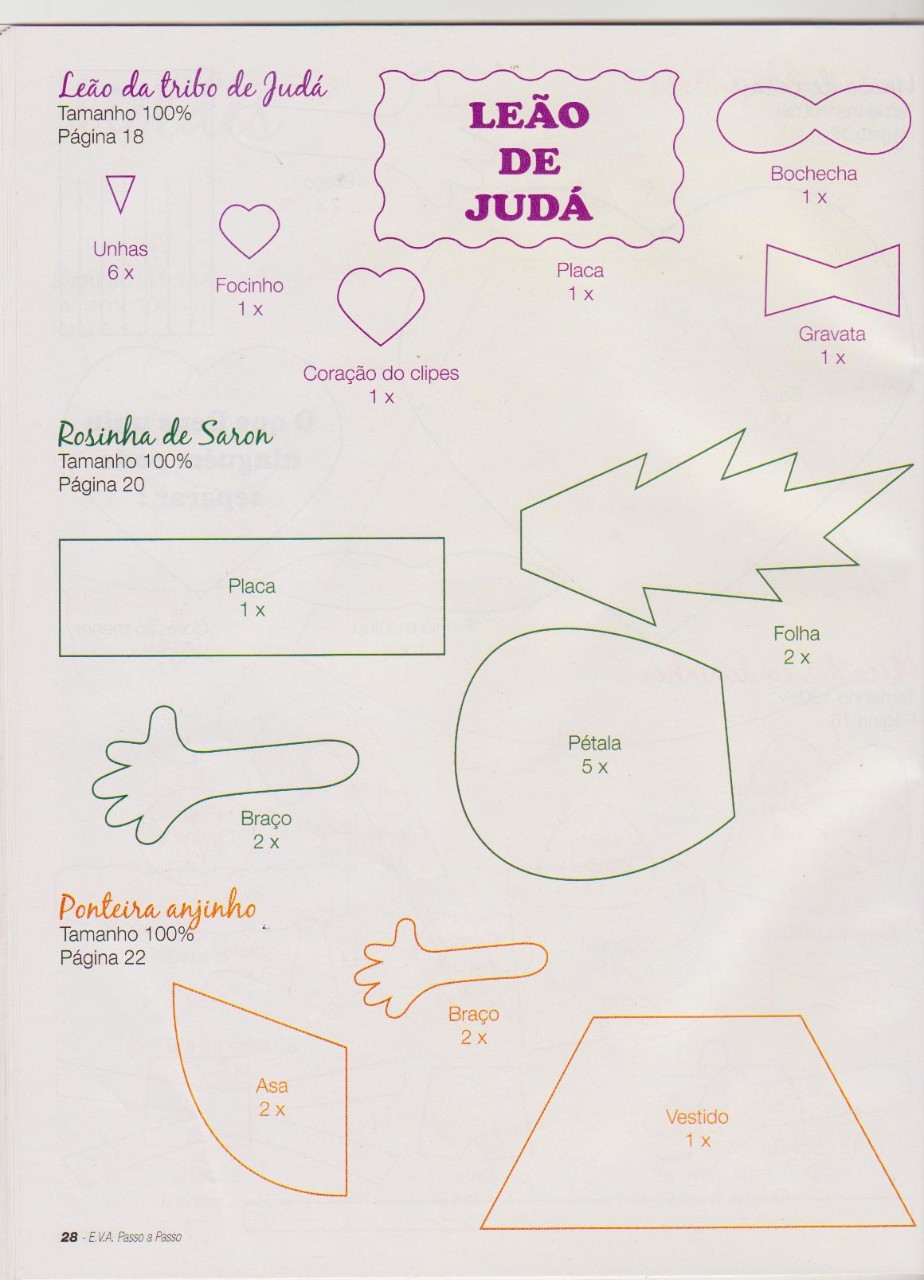 Leão da tribo de Judá
Tamanho 100%
Página 18
LEÃO
DE
JUDÁ
Placa
1 x
Bochecha
1 x
Unhas
6 x
Focinho
1 x
Coração do clipes
1 x
Gravata
1 x
Rosinha de Saron
Tamanho 100%
Página 20
Placa
1 x
Folha
2 x
Pétala
5 x
Braço
2 x
Ponteira anjinho
Tamanho 100%
Página 22
Braço
2 x
Asa
2 x
Vestido
1 x
28 - E.V.A. Passo a Passo